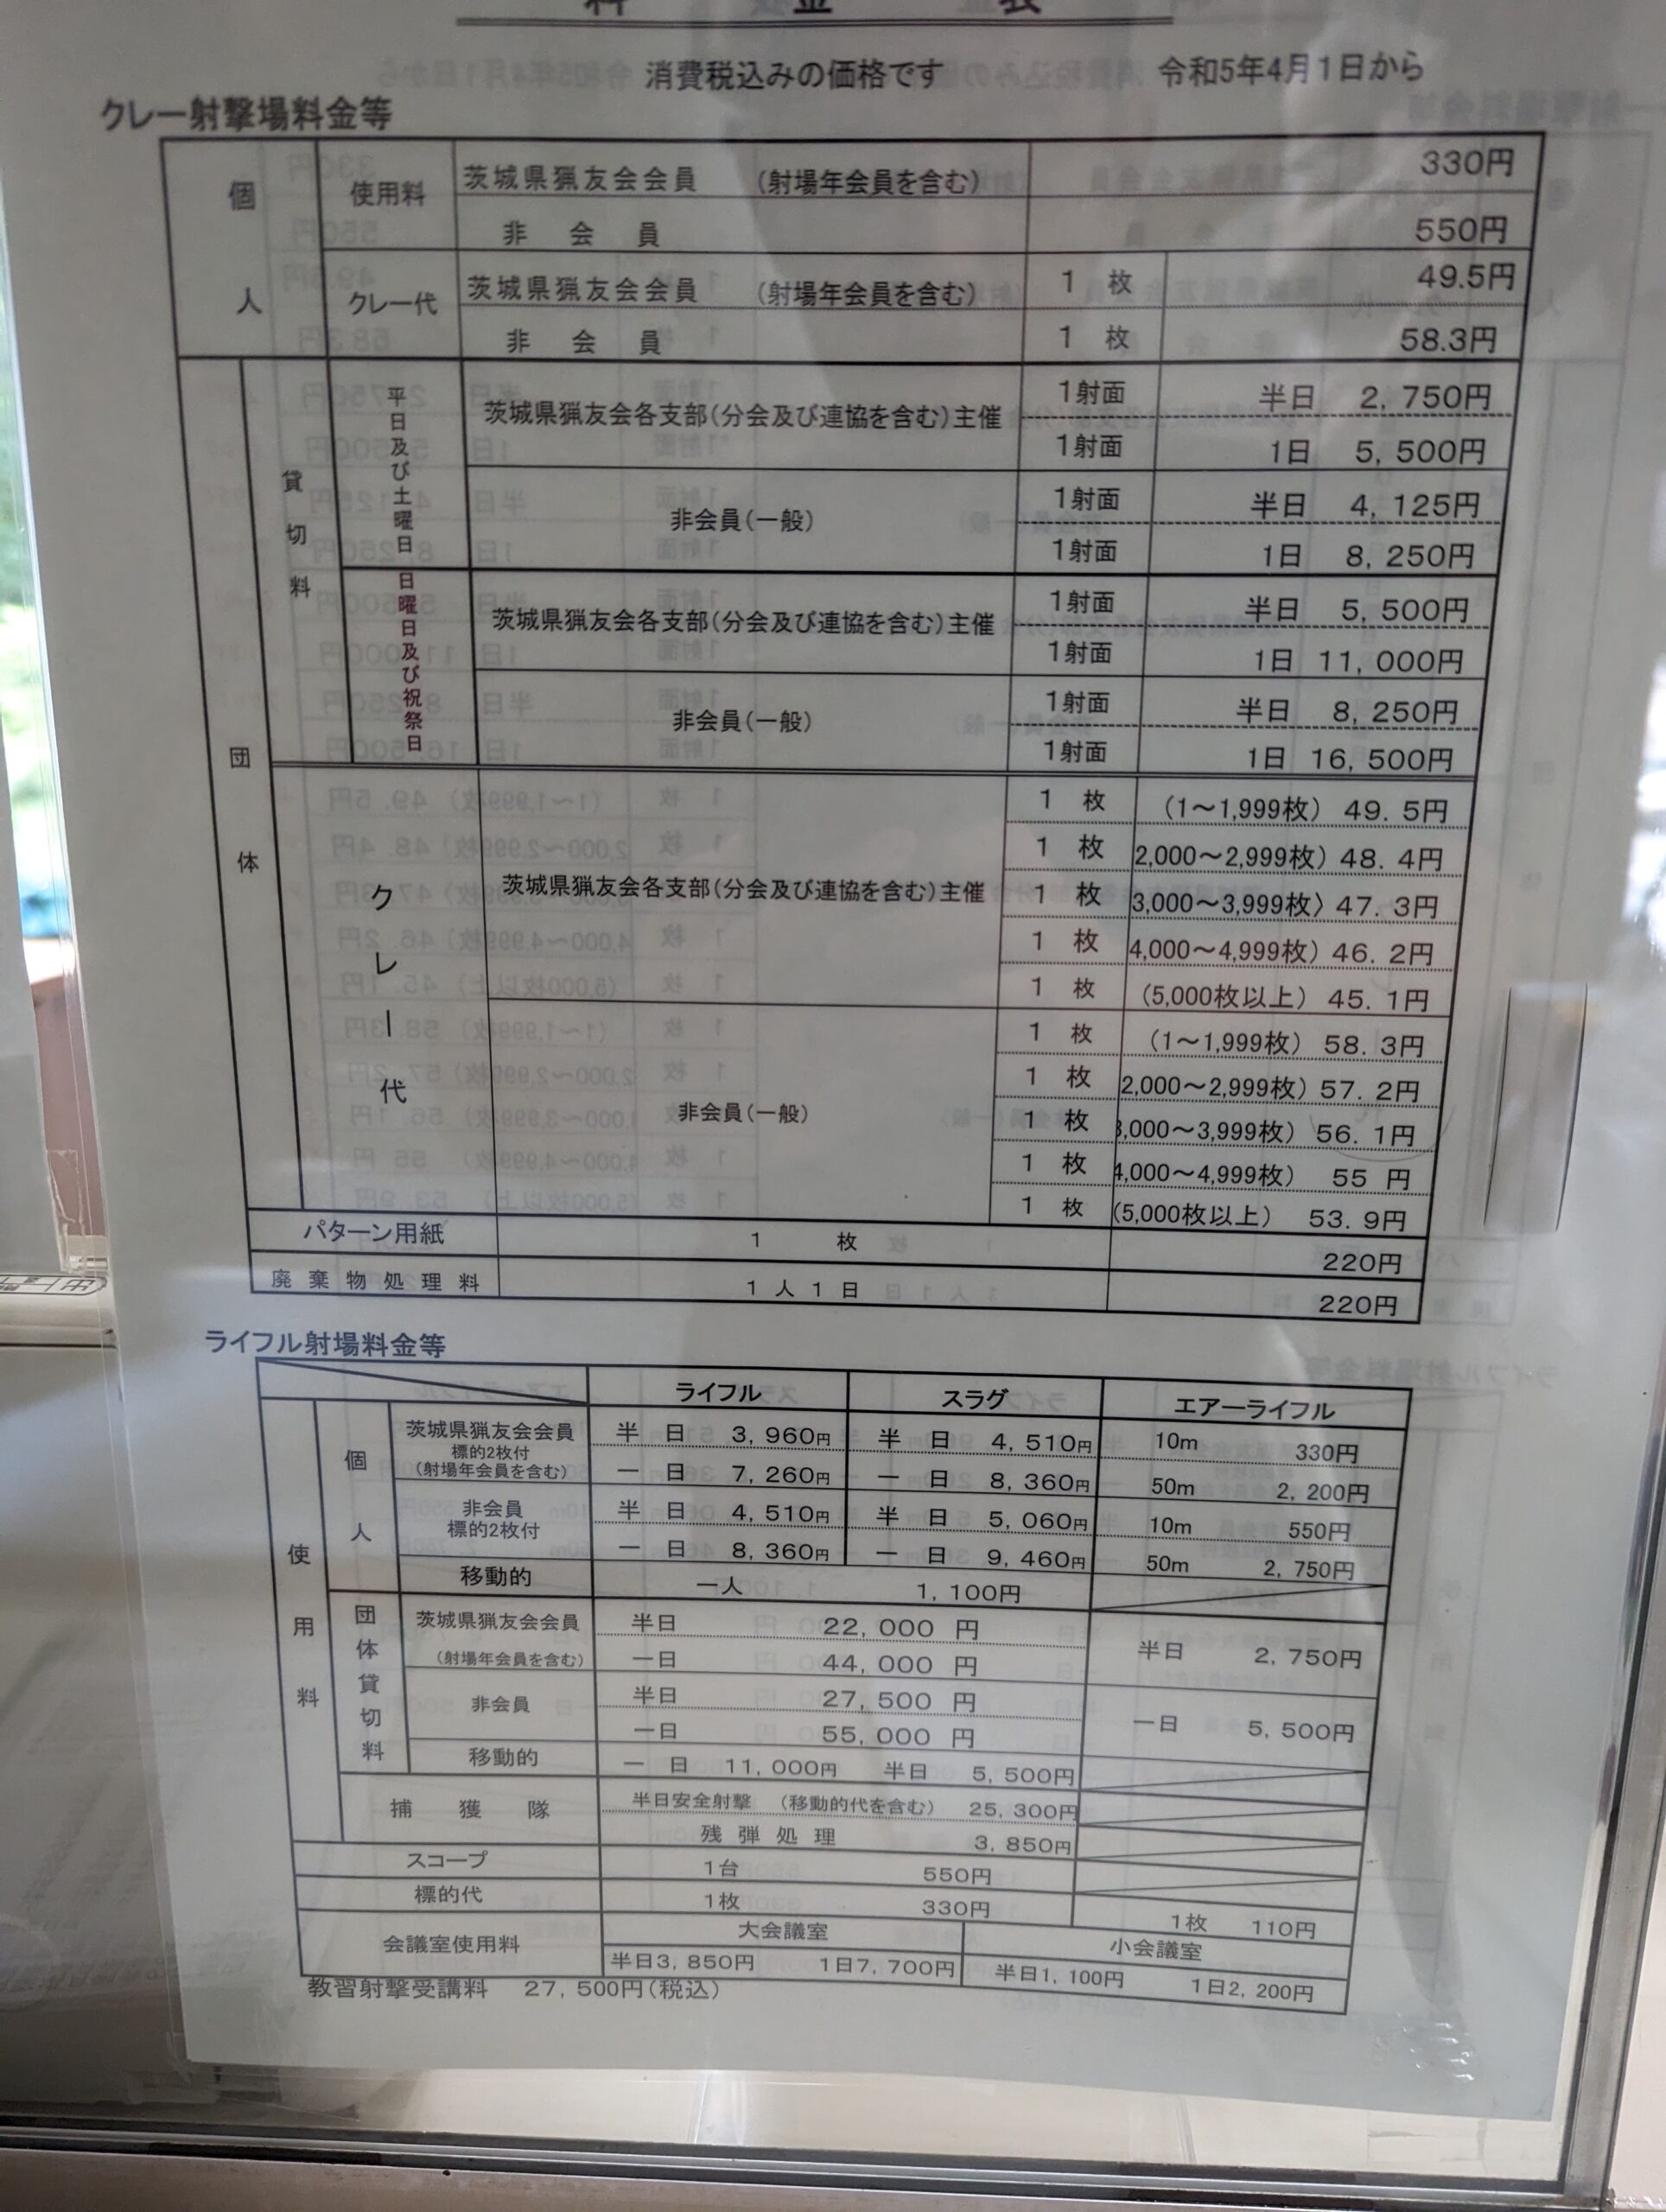 料金表
消費税込みの価格です 令和5年4月1日から
クレー射撃場料金等
個人 使用料 茨城県猟友会会員 (射場年会員を含む) 330円
非会員 550円
クレー代 茨城県猟友会会員 (射場年会員を含む) 1枚 49.5円
非会員 1枚 58.3円
団体 貸切料 平日及び土曜日 茨城県猟友会各支部(分会及び連協を含む)主催 1射面 半日 2,750円
1射面 1日 5,500円
非会員(一般) 1射面 半日 4,125円
1射面 1日 8,250円
日曜日及び祝祭日 茨城県猟友会各支部(分会及び連協を含む)主催 1射面 半日 5,500円
1射面 1日 11,000円
非会員(一般) 1射面 半日 8,250円
1射面 1日 16,500円
クレー代 茨城県猟友会各支部(分会及び連協を含む)主催 1枚 (1〜1,999枚) 49.5円
1枚 2,000〜2,999枚) 48.4円
1枚 3,000〜3,999枚) 47.3円
1枚 4,000〜4,999枚) 46.2円
1枚 (5,000枚以上) 45.1円
非会員(一般) 1枚 (1〜1,999枚) 58.3円
1枚 2,000〜2,999枚) 57.2円
1枚 3,000〜3,999枚) 56.1円
1枚 4,000〜4,999枚) 55円
1枚 (5,000枚以上) 53.9円
パターン用紙 1枚 220円
廃棄物処理料 1人1日 220円
ライフル射場料金等
ライフル スラグ エアーライフル
使用料 個人 茨城県猟友会会員 標的2枚付 (射場年会員を含む) 半日 3,960円 半日 4,510円 10m 330円
一日 7,260円 一日 8,360円 50m 2,200円
非会員 標的2枚付 半日 4,510円 半日 5,060円 10m 550円
一日 8,360円 一日 9,460円 50m 2,750円
移動的 一人 1,100円
団体貸切料 茨城県猟友会会員 (射場年会員を含む) 半日 22,000円 半日 2,750円
一日 44,000円
非会員 半日 27,500円 一日 5,500円
一日 55,000円
移動的 一日 11,000円 半日 5,500円
捕獲隊 半日安全射撃 (移動的代を含む) 25,300円
残弾処理 3,850円
スコープ 1台 550円
標的代 1枚 330円 1枚 110円
会議室使用料 大会議室 小会議室
半日3,850円 1日7,700円 半日1,100円 1日2,200円
教習射撃受講料 27,500円(税込)